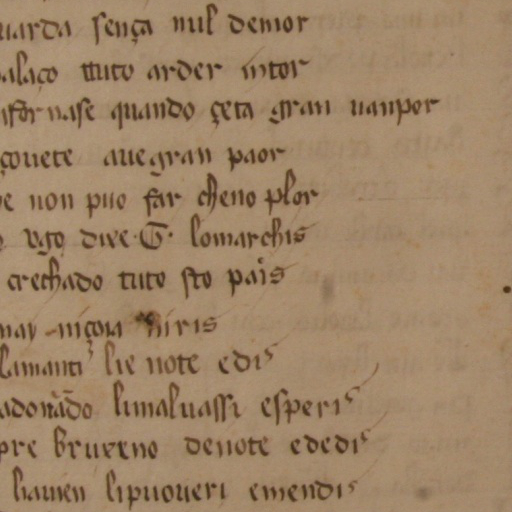 uarda sença nul demor
alaço tuto arder intor
nfornase quando çeta gran uanpor
çouete auegran paor
e non puo far cheno plor
ugo dixe .G. lomarchis
crechado tuto sto pais
may niris
lamanti lie note edis
adorãdo limaluassi esperis
pre bruxeno denote ededis
liauen lipuoueri emendis